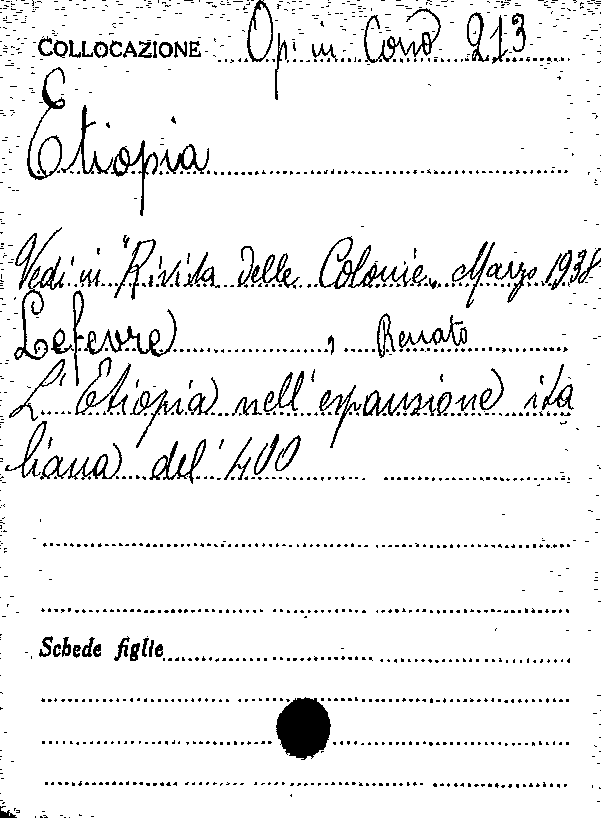 COLLOCAZIONE Op. in Corso 213
Etiopia
Vedi in "Rivista delle Colonie„ Marzo 1938
Lefevre, Renato
L'Etiopia nell'espansione ita
liana del '400
Schede figlie